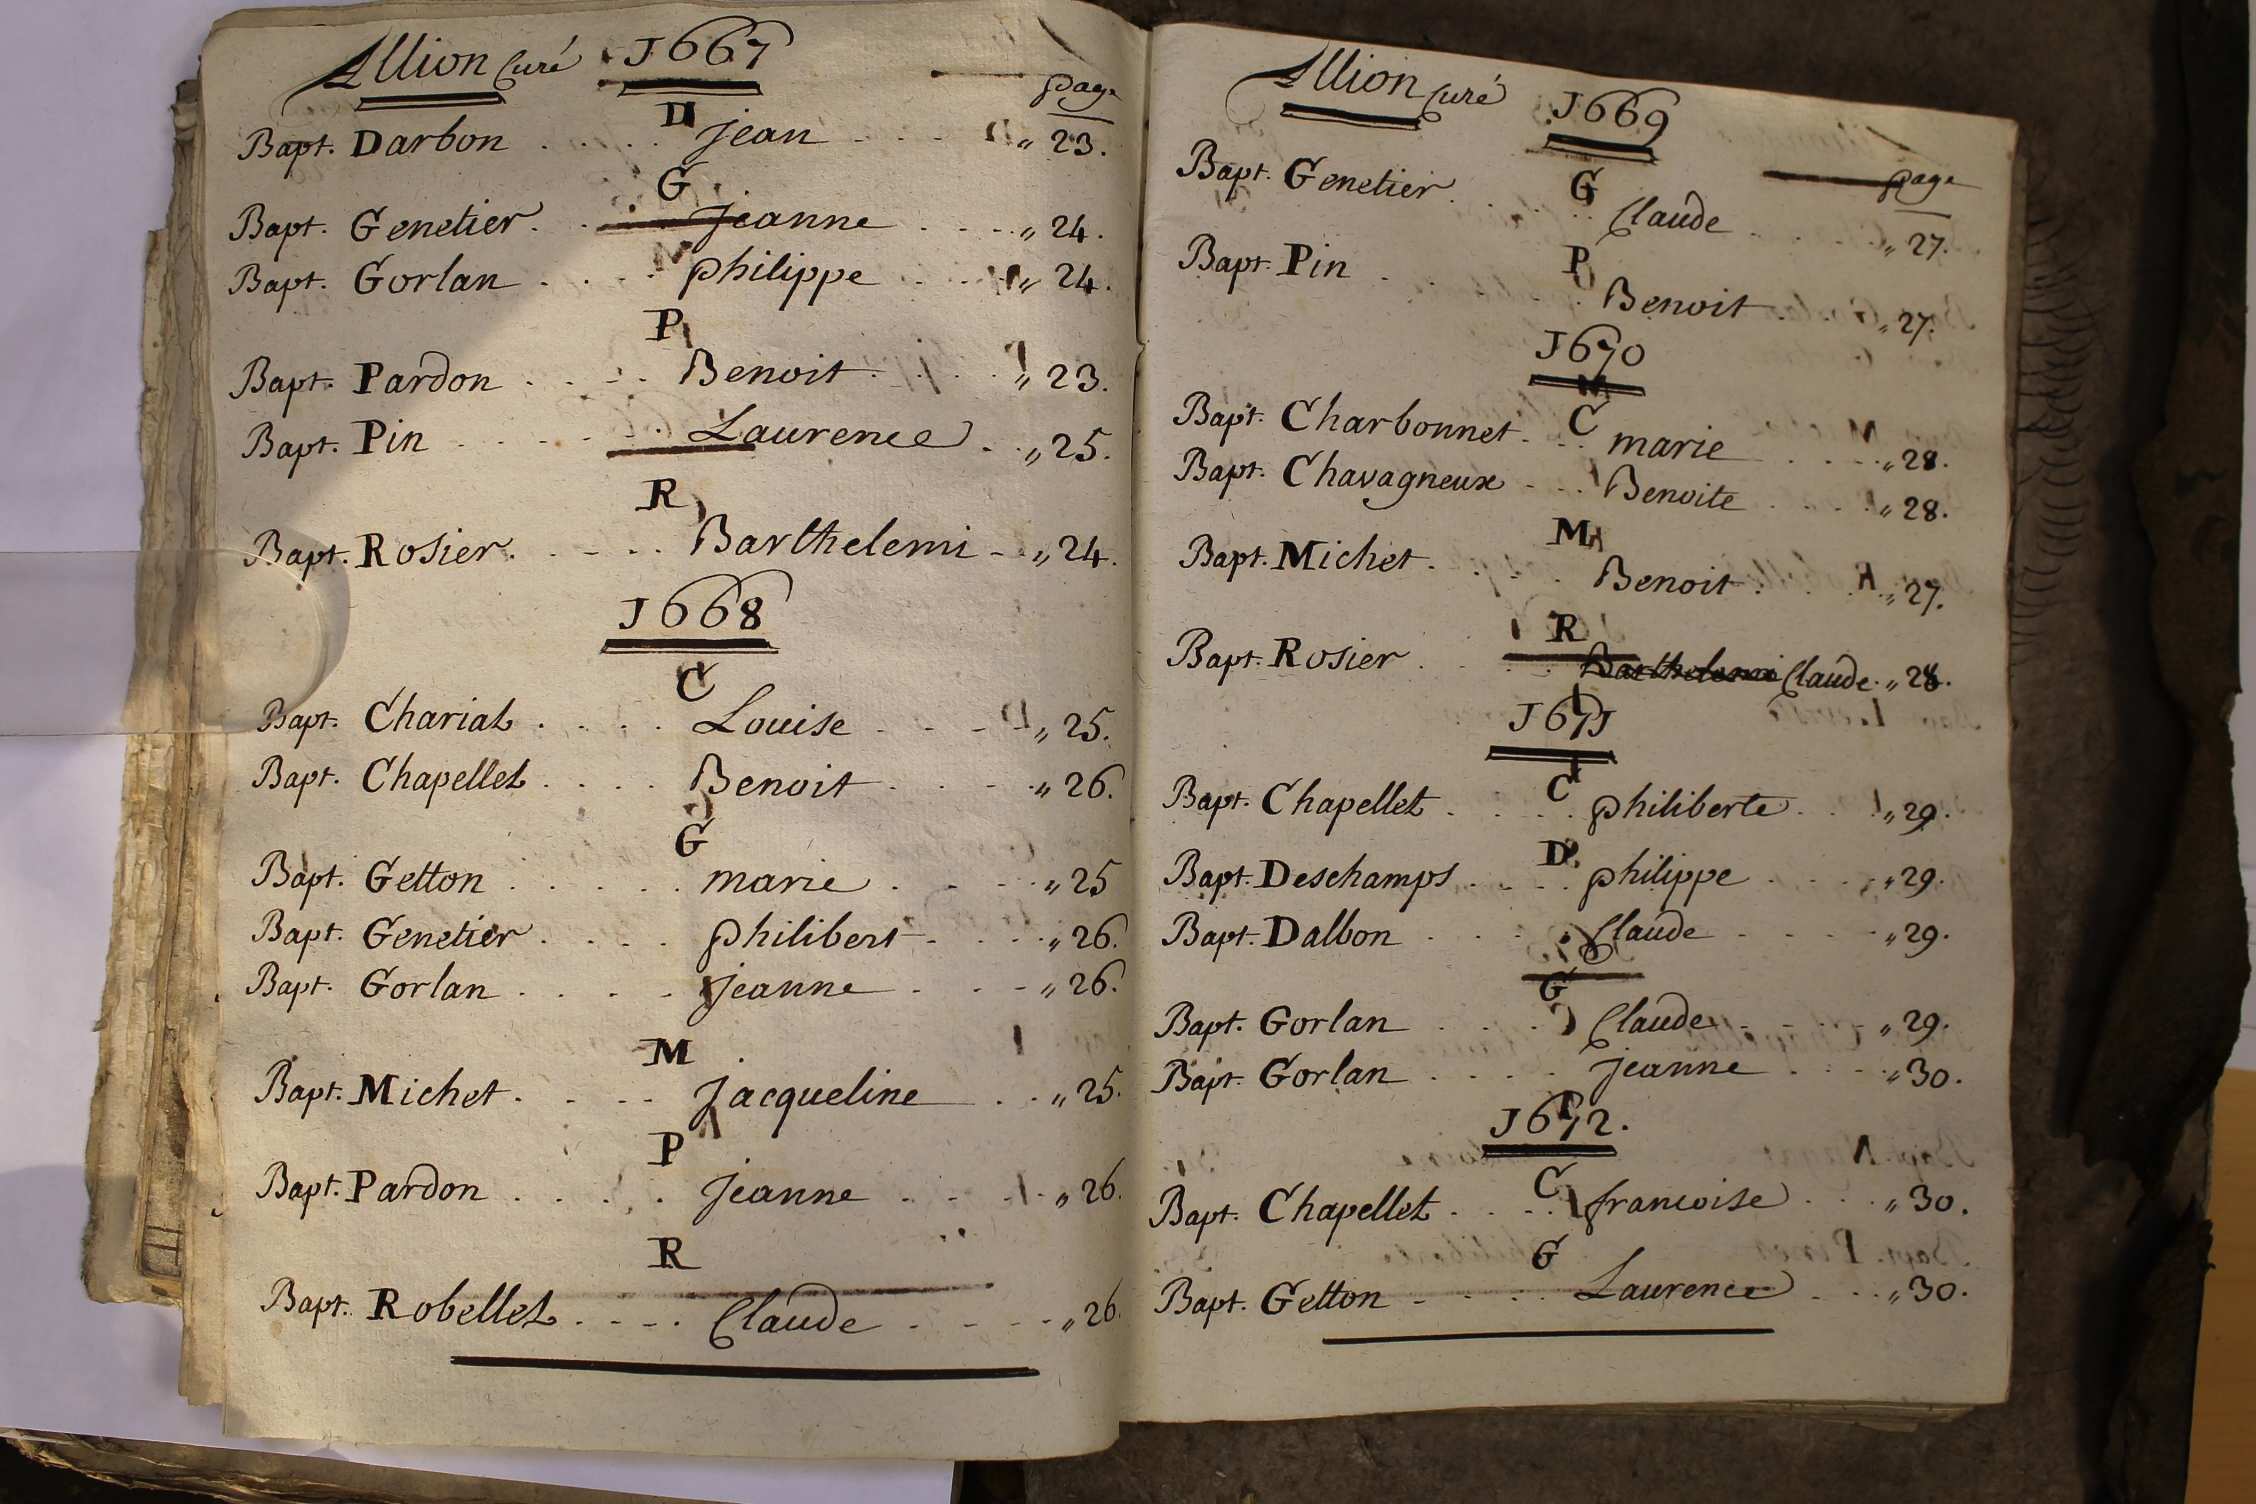 Allion Curé 1667
page
D
Bapt. Darbon . . . . . Jean . . . . „ 23.
G
Bapt. Genetier . . . Jeanne . . . . „ 24.
Bapt. Gorlan . . . . philippe . . . . „ 24.
P
Bapt. Pardon . . . . Benoit . . . . „ 23.
Bapt. Pin . . . . . Laurence . . „ 25.
R
Bapt. Rosier . . . . Barthelemi . . „ 24.
1668
C
Bapt. Chariat . . . . Louise . . . . „ 25.
Bapt. Chapellet . . . . Benoit . . . . „ 26.
G
Bapt. Getton . . . . . marie . . . . „ 25
Bapt. Genetier . . . . philibert . . . . „ 26.
Bapt. Gorlan . . . . Jeanne . . . „ 26.
M
Bapt. Michet . . . . Jacqueline . . „ 25.
P
Bapt. Pardon . . . . Jeanne . . . . „ 26.
R
Bapt. Robellet . . . . Claude . . . . „ 26.
Allion Curé 1669
page
G
Bapt. Genetier . . . . Claude . . . . „ 27.
P
Bapt. Pin . . . . Benoit . . „ 27.
1670
C
Bapt. Charbonnet . . . marie . . . . „ 28.
Bapt. Chavagneux . . . Benoite . . . . „ 28.
M
Bapt. Michet . . . . Benoit . . . „ 27.
R
Bapt. Rosier . . . . Barthelemi Claude . „ 28.
1671
C
Bapt. Chapellet . . . . philiberte . . . „ 29.
D
Bapt. Deschamps . . . . philippe . . . . „ 29.
Bapt. Dalbon . . . . Claude . . . . „ 29.
G
Bapt. Gorlan . . . . Claude . . . . „ 29.
Bapt. Gorlan . . . . Jeanne . . . . „ 30.
1672.
C
Bapt. Chapellet . . . . francoise . . . „ 30.
G
Bapt. Getton . . . . Laurence . . . „ 30.